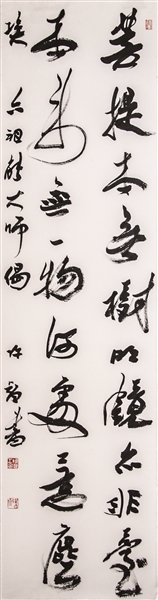 菩提本無樹明鏡亦非臺
本來無一物何處惹塵
埃 六祖能大師偈 書